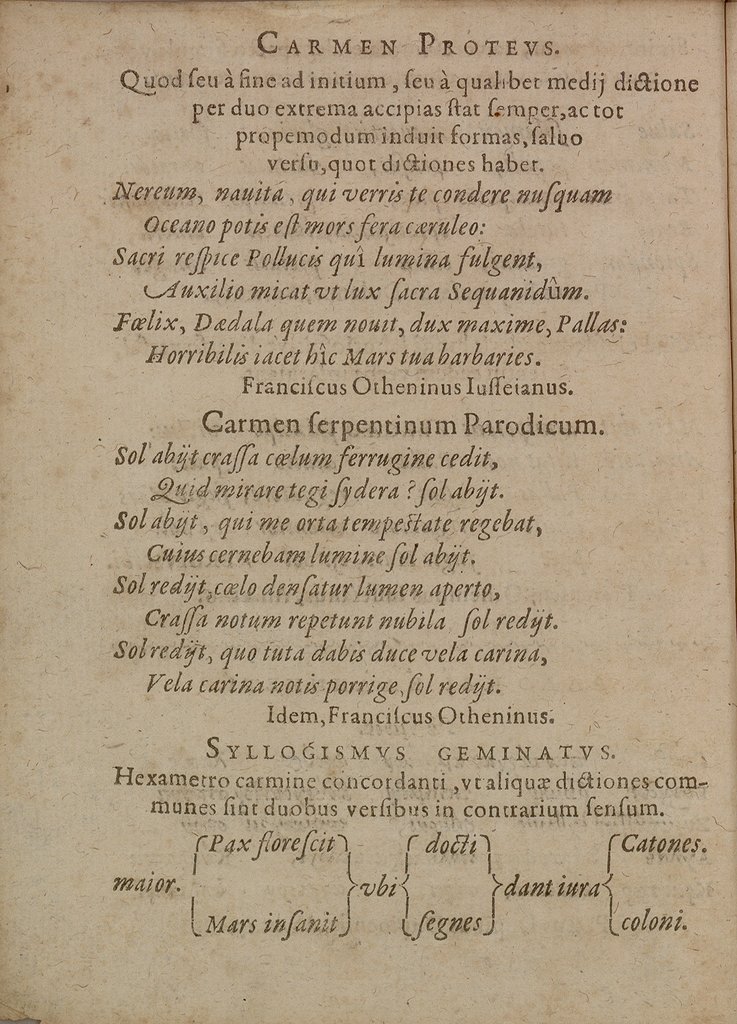 CARMEN PROTEVS.
Quod seu à fine ad initium, seu à qualibet medij dictione
per duo extrema accipias stat semper, ac tot
propemodum induit formas, saluo
versu, quot dictiones habet.
Nereum, nauita, qui verris te condere nusquam
Oceano potis est mors fera cæruleo:
Sacri respice Pollucis quî lumina fulgent,
Auxilio micat vt lux sacra Sequanidûm.
Fœlix, Dædala quem nouit, dux maxime, Pallas:
Horribilis iacet hîc Mars tua barbaries.
Franciscus Otheninus Iusseianus.
Carmen serpentinum Parodicum.
Sol abijt crassa cœlum ferrugine cedit,
Quid mirare tegi sydera? sol abijt.
Sol abijt, qui me orta tempestate regebat,
Cuius cernebam lumine sol abijt.
Sol redijt, cœlo densatur lumen aperto,
Crassa notum repetunt nubila sol redijt.
Sol redijt, quo tuta dabis duce vela carina,
Vela carina notis porrige, sol redijt.
Idem, Franciscus Otheninus.
SYLLOGISMVS GEMINATVS.
Hexametro carmine concordanti, vt aliquæ dictiones com-
munes sint duobus versibus in contrarium sensum.
Pax florescit docti Catones.
maior. vbi dant iura
Mars insanit segnes coloni.